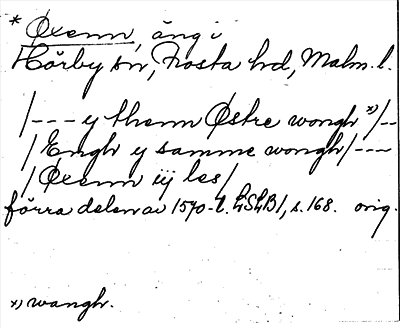 * Øxenn, äng i
Hörby sn, Frosta hd, Malm. l.
/--- y thenn Østre wongh x)/--
/Engh y samme wongh/---
/Øxenn iij les/
förra delen av 1570-t. LSLB1, s. 168. orig.
x) wangh.